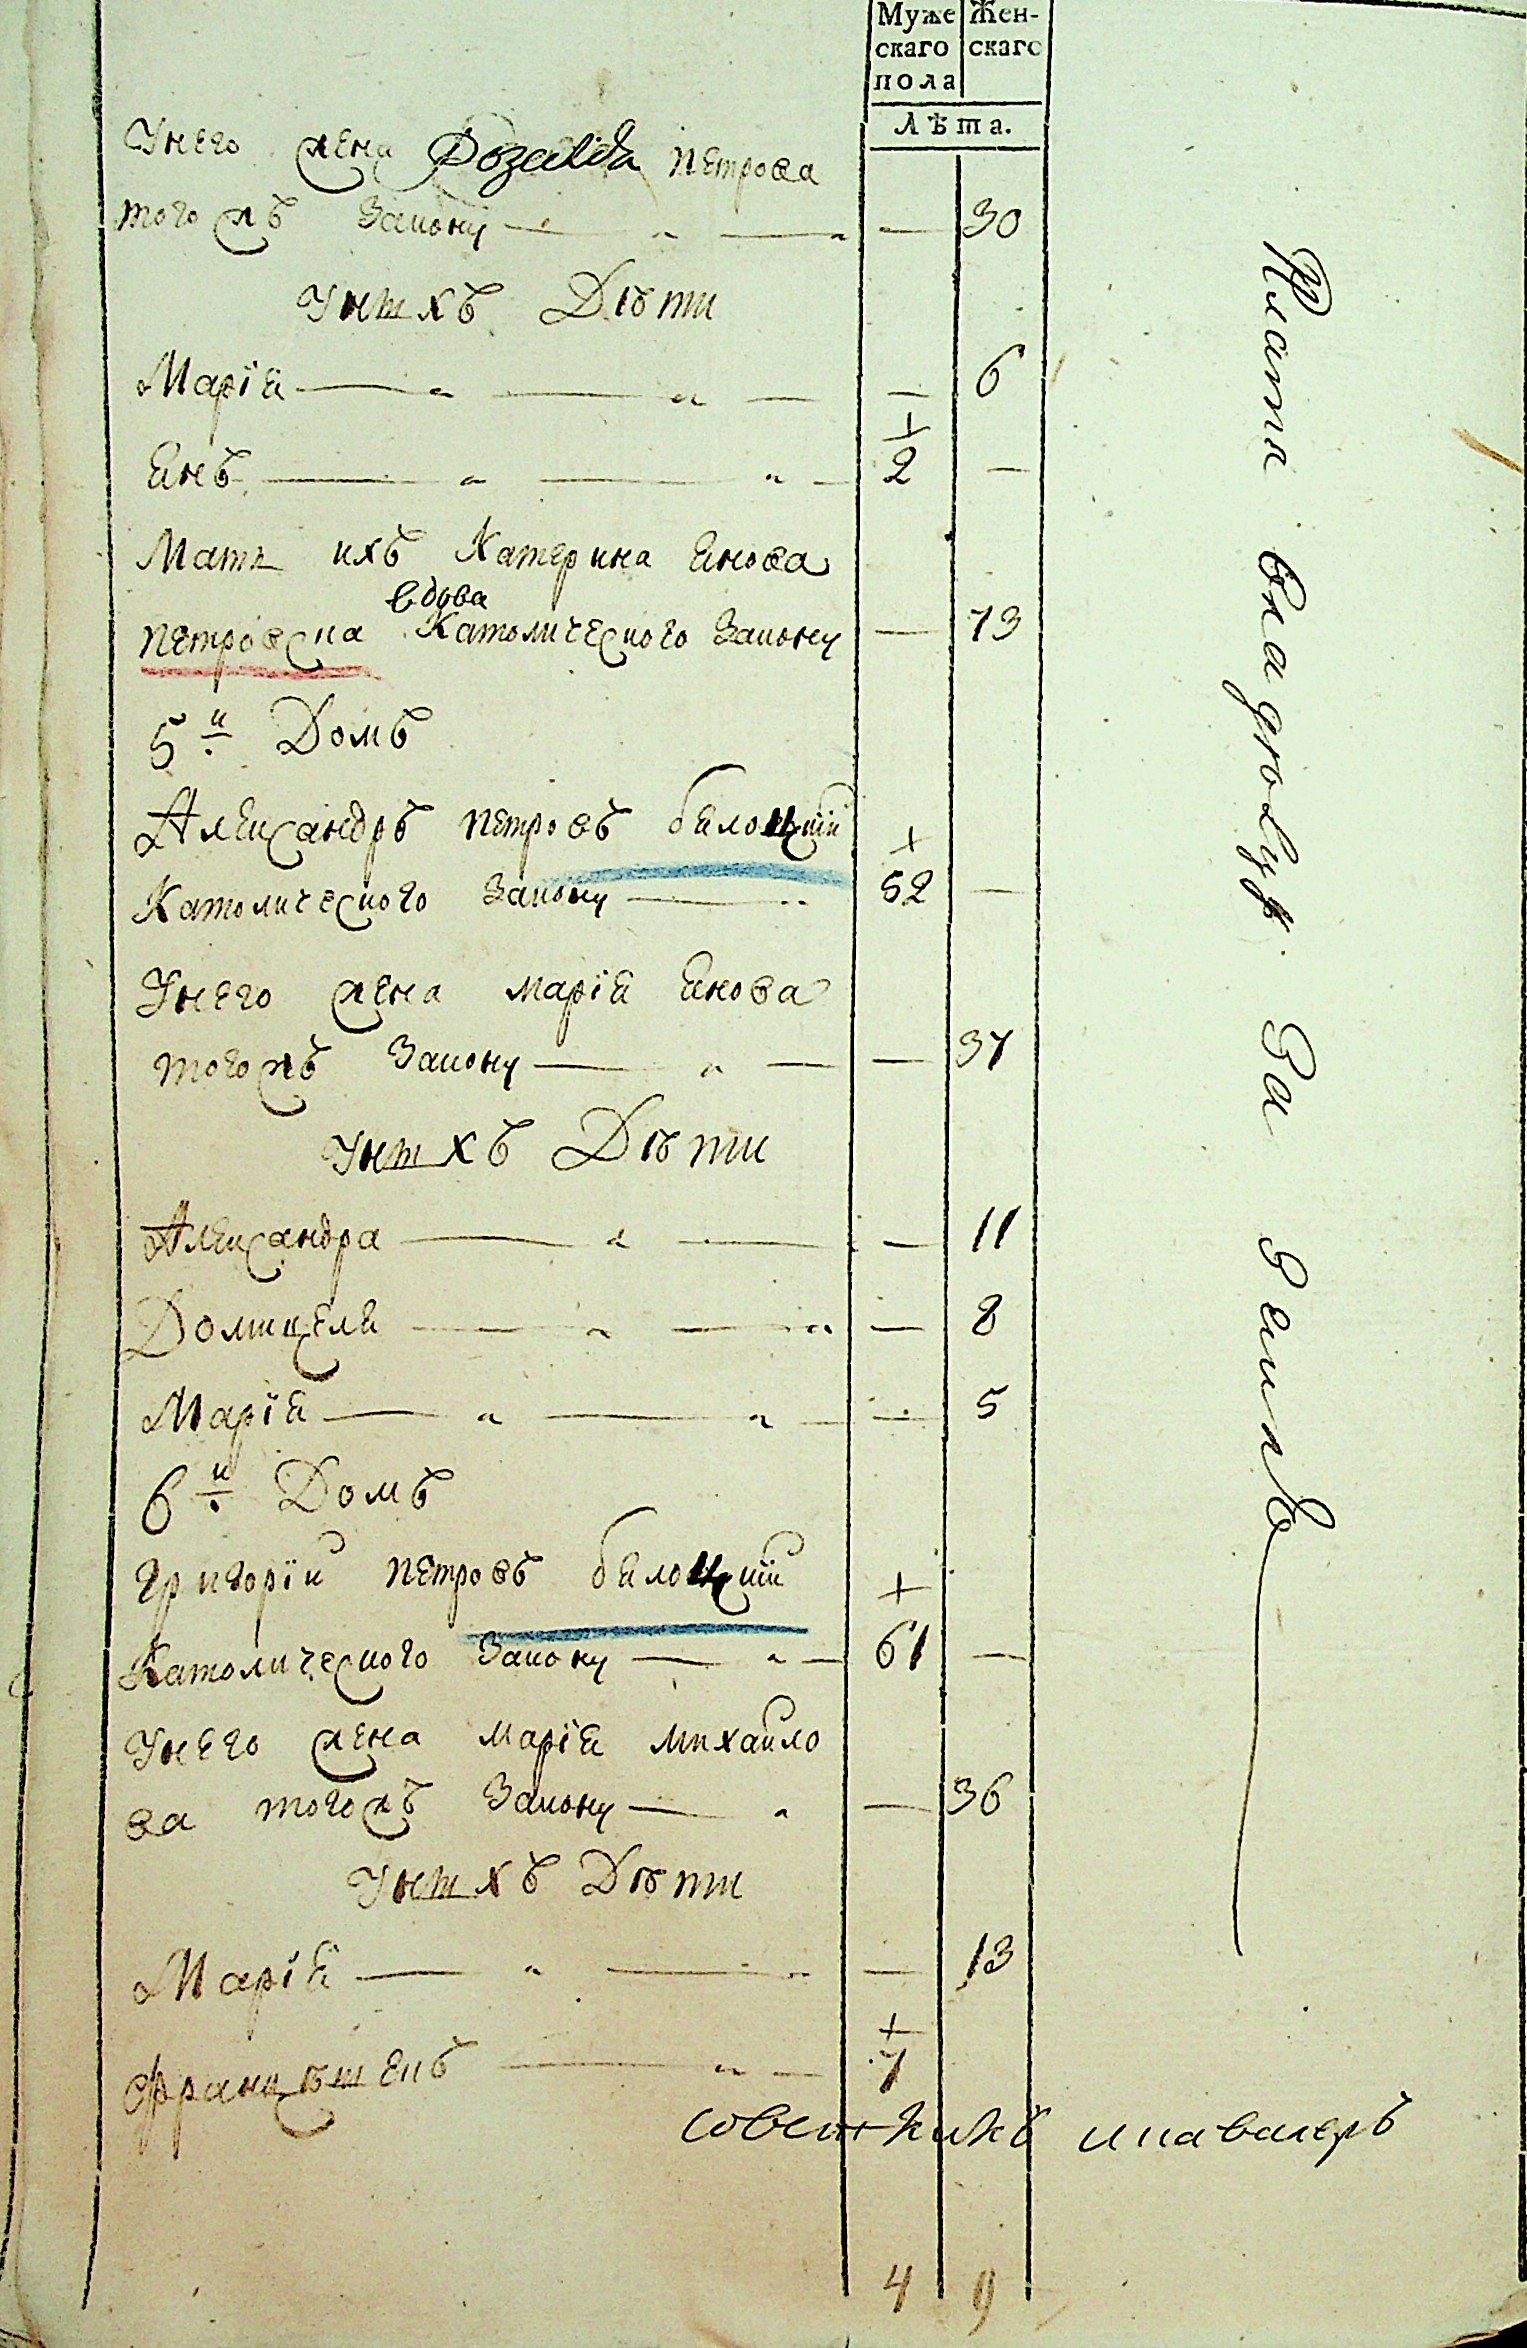 Муже Жен-
скаго скаго
пола
Лѣта.
Унего жена Розалія Петрова
тогожъ закону — — 30
Унихъ Дѣти
Марія — — 6
Янъ — + 2 —
Мать ихъ Катерина Янова
вдова
Петровска Католического закону — 73
5й Домъ
Александръ Петровъ белоцкій +
Католического закону — 52 —
Унего жена Марія Янова
тогожъ закону — — 37
Унихъ Дѣти
Александра — — 11
Домицеля — — 8
Марія — — 5
6й Домъ
Григорій Петровъ белоцкій +
Католического закону — 61 —
Унего жена Марія Михайло
ва тогожъ закону — — 36
Унихъ Дѣти
Марія — — 13
Францѣшекъ — + 7
советникъ икавалеръ
4 9